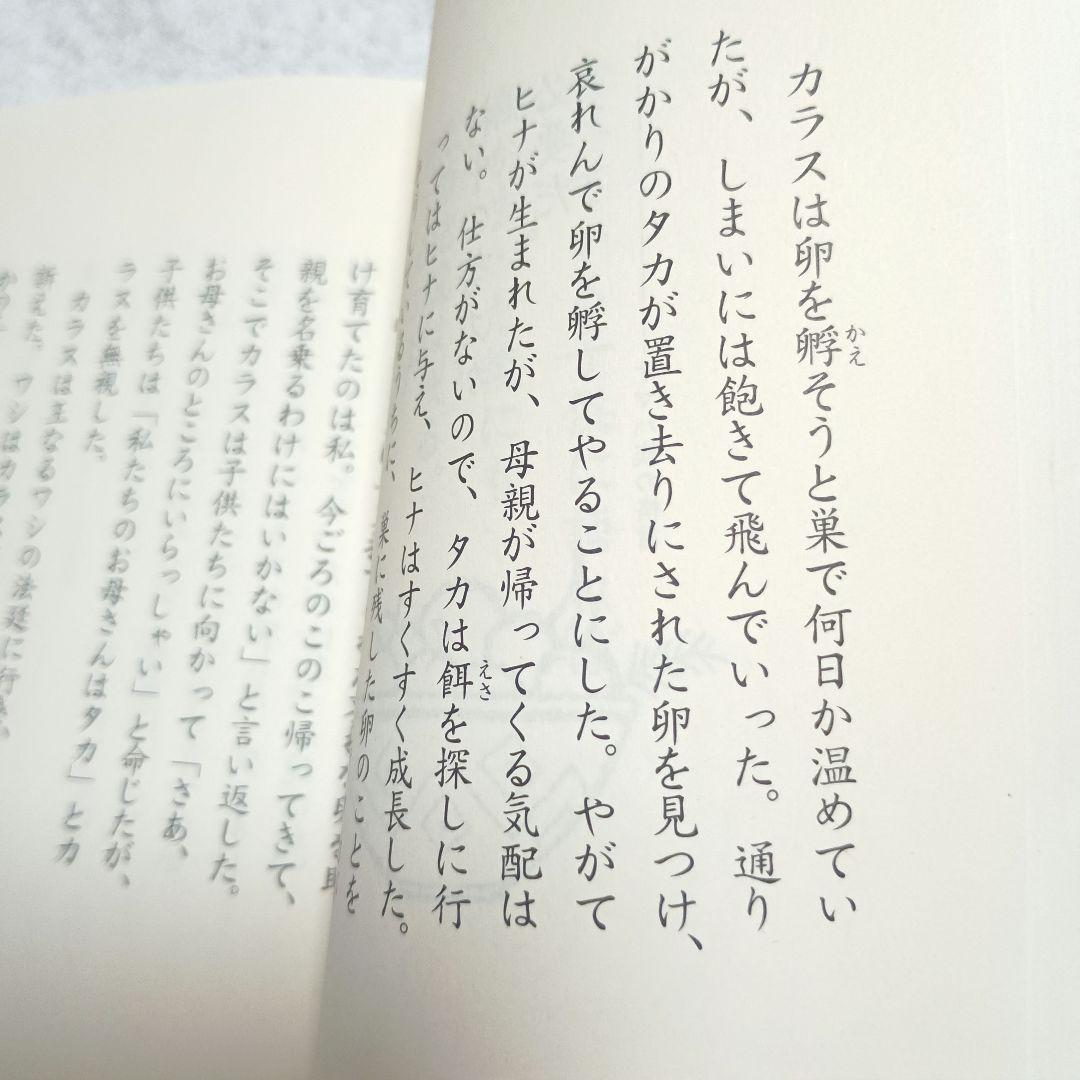 カラスは卵を孵そうと巣で何日か温めてい
かえ
たが、しまいには飽きて飛んでいった。通り
がかりのタカが置き去りにされた卵を見つけ、
哀れんで卵を孵してやることにした。やがて
ヒナが生まれたが、母親が帰ってくる気配は
ない。仕方がないので、タカは餌を探しに行
えさ
ってはヒナに与え、ヒナはすくすく成長した。
巣に残した卵のことを
け育てたのは私。今ごろのこのこ帰ってきて、
親を名乗るわけにはいかない」と言い返した。
そこでカラスは子供たちに向かって「さあ、
お母さんのところにいらっしゃい」と命じたが、
子供たちは「私たちのお母さんはタカ」とカ
ラスを無視した。
カラスは王なるワシの法廷に行き、
訴えた。ワシはカラス